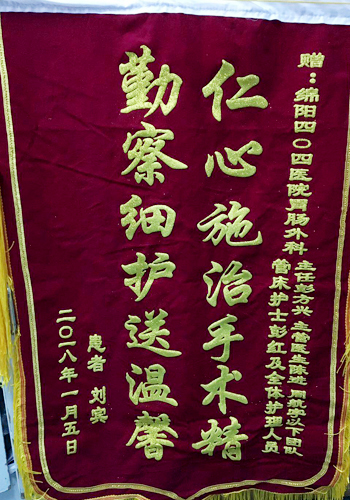 赠：绵阳四〇四医院胃肠外科
主任彭方兴 主管医生陈进
团队
管床护士彭红及全体护理人员
仁心施治手术精
勤察细护送温馨
患者 刘宾
二〇一八年一月五日